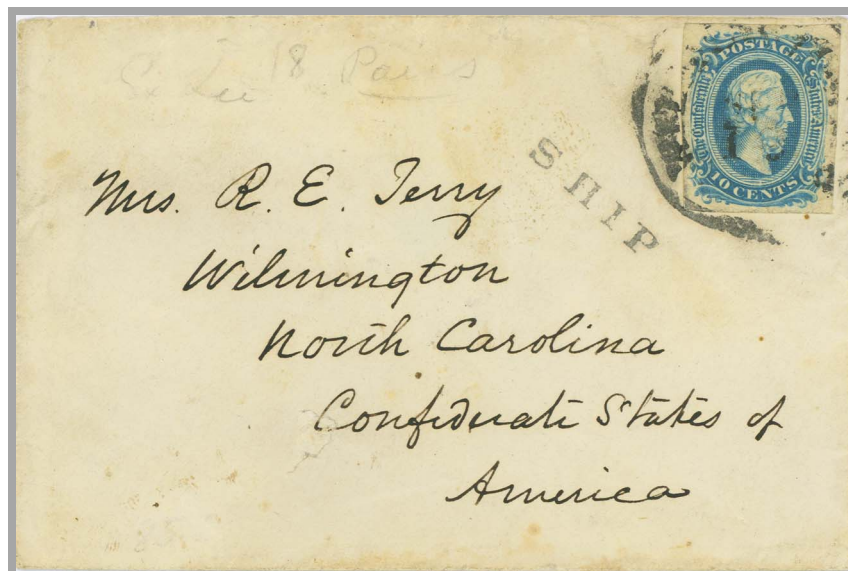 POSTAGE
The Confederate States of America
10 CENTS
SHIP
18 Pains
Mrs. R. E. Terry
Wilmington
North Carolina
Confederate States of
America